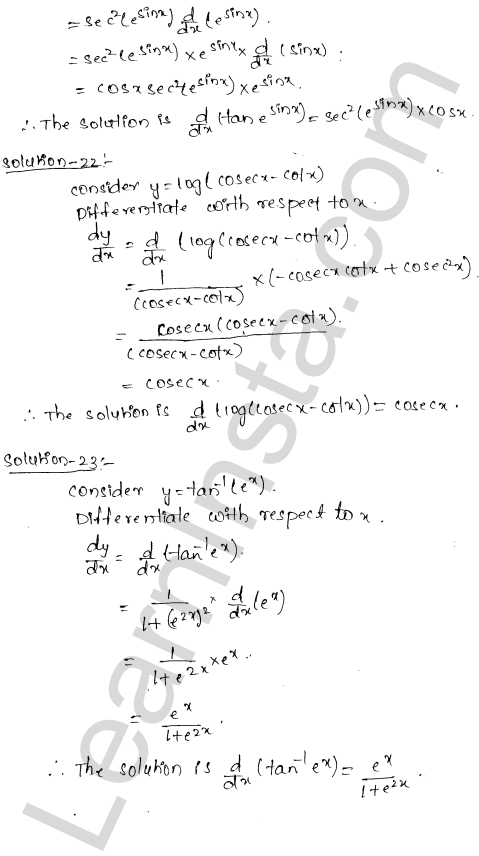 = sec²(e^sinx) d/dx (e^sinx).
= sec²(e^sinx) × e^sinx × d/dx (sinx).
= cosx sec²(e^sinx) × e^sinx.
∴ The solution is d/dx (tan e^sinx) = sec²(e^sinx) × cosx.
Solution-22:-
consider y = log(cosecx - cotx)
Differentiate with respect to x.
dy/dx = d/dx (log(cosecx - cotx)).
= 1/(cosecx - cotx) × (-cosecx cotx + cosec²x).
= cosecx (cosecx - cotx)./(cosecx - cotx)
= cosecx.
∴ The solution is d/dx (log(cosecx - cotx)) = cosecx.
Solution-23:-
consider y = tan⁻¹(e^x).
Differentiate with respect to x.
dy/dx = d/dx (tan⁻¹e^x).
= 1/(1+(e^2x)²) × d/dx (e^x)
= 1/(1+e^2x) × e^x.
= e^x/(1+e^2x).
∴ The solution is d/dx (tan⁻¹e^x) = e^x/(1+e^2x).
LearnInsta.com